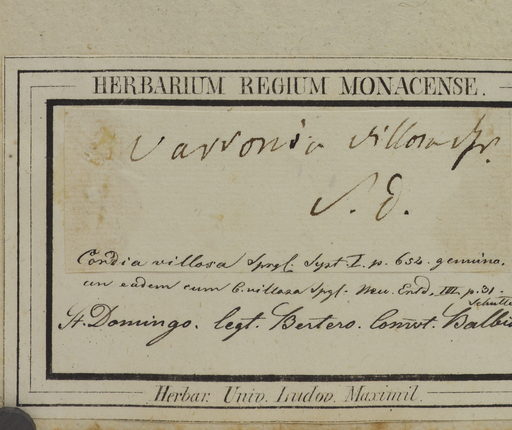 HERBARIUM REGIUM MONACENSE.
Varronia villosa Spr.
S. D.
Cordia villosa Sprgl. Syst. I. p. 654. genuina.
an eadem cum C. villosa Spgl. Neu. Entd. III. p. 31.
St. Domingo. legt. Bertero. Comvt. Balbis
Herbar. Univ. Ludov. Maximil.